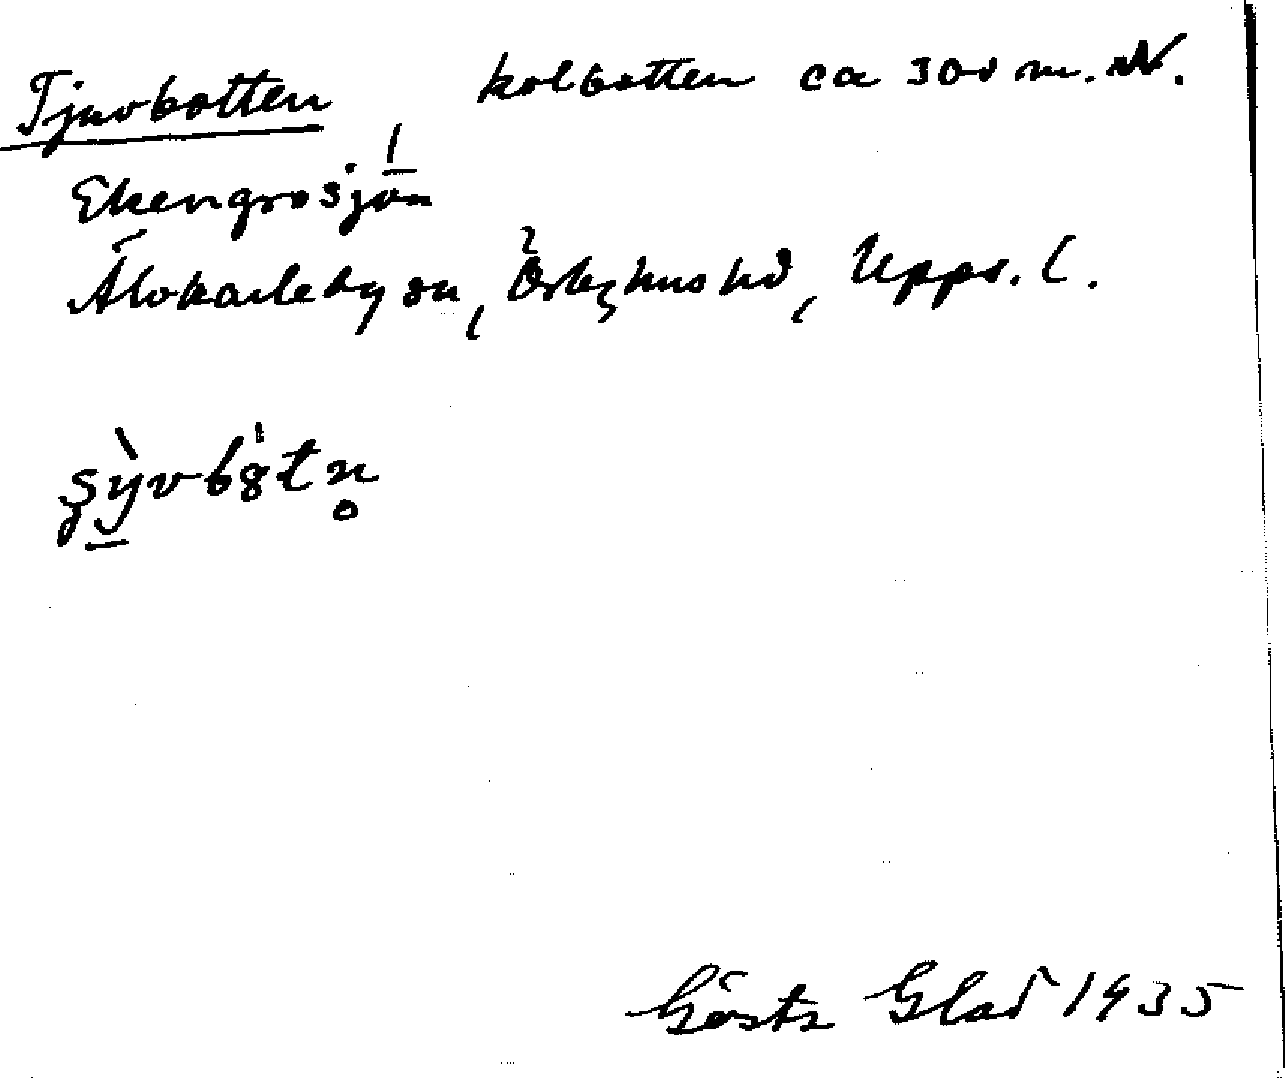 Tjuvbotten, kolbotten ca 300 m. N.
Ekengrosjön
Älvkarleby sn, Örbyhus hd, Upps. l.
Gösta Glad 1935